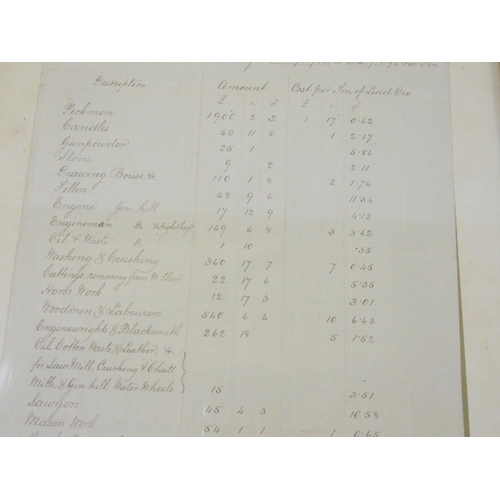 Description Amount Cost per Ton of Lead Ore
£ s d £ s d
Pickmen 1900 2 2 1 17 0.62
Candles 60 11 6 1 2.17
Gunpowder 25 1 5.86
Stone 9 2 2.11
Drawing Bouse &c. 110 1 8 2 1.74
Fillers 48 9 6 11.34
Engine Gin hill 17 12 9 4.13
Engineman Do & Nightshift 169 6 8 3 3.62
Oil & Waste Do 1 10 .35
Washing & Crushing 360 17 7 7 0.45
Cuttings removing from W. Weir 22 17 6 5.35
Horse Work 12 17 3 3.01
Woodmen & Labourers 540 6 4 10 6.43
Enginewrights & Blacksmith 262 18 5 1.52
Oil Cotton Waste & Leather, &c.
for Saw Mill, Crushing & Chatt
Mills & Gin hill Water Wheels 15 3.51
Sawyers 45 4 3 10.58
Mason Work 54 1 1 1 0.65